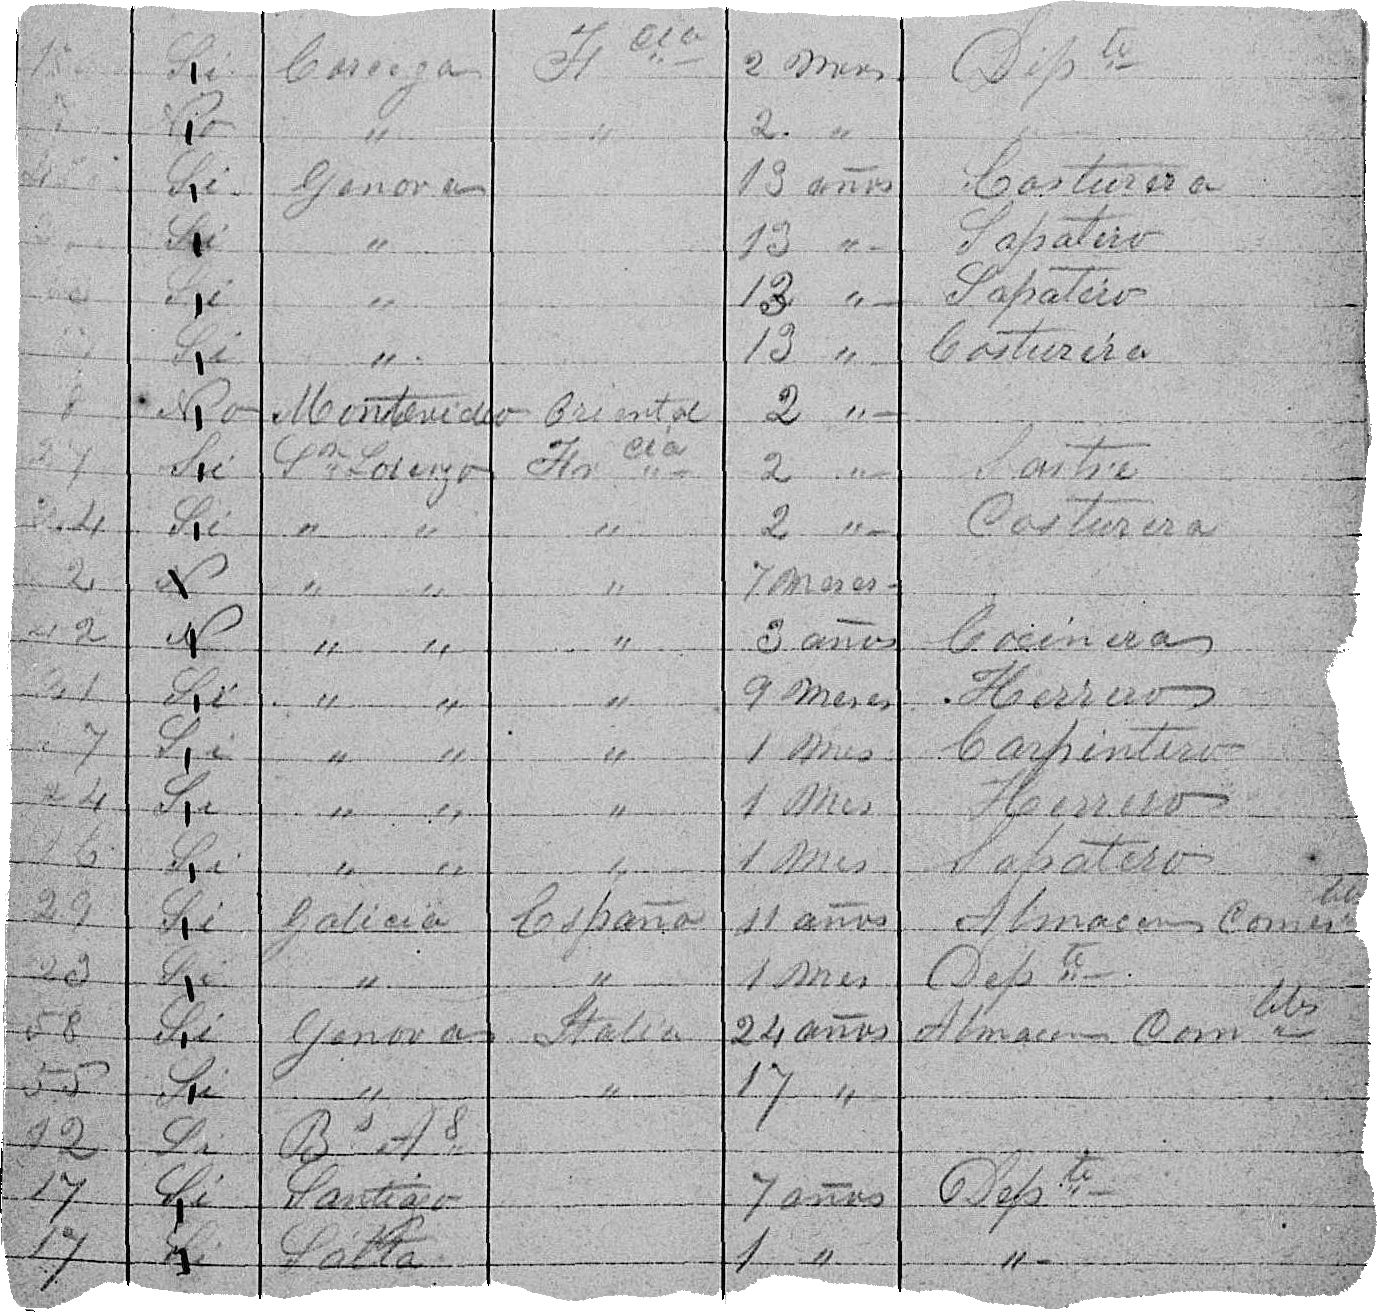 Si Corcega Fr cia 2 mess Dep te
No " " 2. "
Si Genova 13 años Costurera
Si " 13 " Sapatero
Si " 13 " Sapatero
Si " 13 " Costurera
8 No Montevideo Oriental 2 "
Si Sn Lorenzo Fr cia 2 " Sastre
34 Si " " " 2 " Costurera
2 N " " " 7 Meses
42 N " " " 3 años Cocinera
31 Si " " " 9 Meses Herrero
7 Si " " " 1 Mes Carpintero
24 Si " " " 1 Mes Herrero
16 Si " " " 1 Mes Sapatero
29 Si Galicia España 11 años Almacen Comes bles
23 Si " " 1 Mes Dep te
58 Si Genova Italia 24 años Almacen Com bles
55 Si " " 17 "
12 Si Bs As
17 Si Santiago 7 años Dep te
17 Si Salta 1 " "